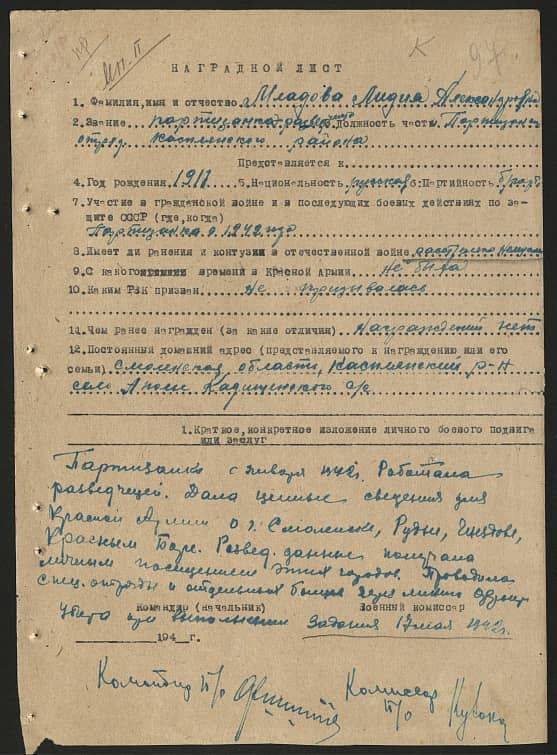 К 97
НАГРАДНОЙ ЛИСТ
1. Фамилия,имя и отчество Младова Лидия Александровна
2. Звание партизанка 3. Должность часть Партизанск.
отряд Касплянского района
Представляется к
4. Год рождения 1911 5. Национальность русская 6. Партийность б/парт
7. Участие в гражданской войне и в последующих боевых действиях по за-
щите СССР (где,когда)
Партизанка с 1942 года
8. Имеет ли ранения и контузии в отечественной войне
9. С какого времени в Красной Армии не была
10. Каким РВК призван не призывалась
11. Чем ранее награжден (за какие отличия) Награждений нет
12. Постоянный домашний адрес (представляемого к награждению или его
семьи) Смоленская области, Касплянский р-н
село Кадищенского с/с
1. Краткое, конкретное изложение личного боевого подвига
или заслуг
Партизанка с января 1942г. Работала
разведчицей. Дала ценные сведения для
Красной Армии о г. Смоленске, Рудне, Гнездове,
Красным Боре. Развед. данные получала
личным посещением этих городов. Проводила
спец. отряды и отдельных бойцов через линию фронта
Командир (начальник) Военный комиссар
Убита при выполнении задания 17 мая 1942г.
194 г.
Командир п/о Комиссар
п/о